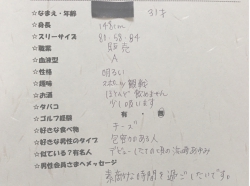 ☆なまえ・年齢 31才
☆身長 148cm
☆スリーサイズ 81-58-84
☆職業 販売
☆血液型 A
☆性格 明るい
☆趣味 スポーツ観戦
☆お酒 ほとんど飲めません
☆タバコ 少し吸います。
☆ゴルフ経験 有 無
☆好きな食べ物 チーズ
☆好きな男性のタイプ 包容力のある人
☆似ている?有名人 デビューしたての頃の浜崎あゆみ
☆男性会員さまへメッセージ
素敵な時間を過ごしたいです。